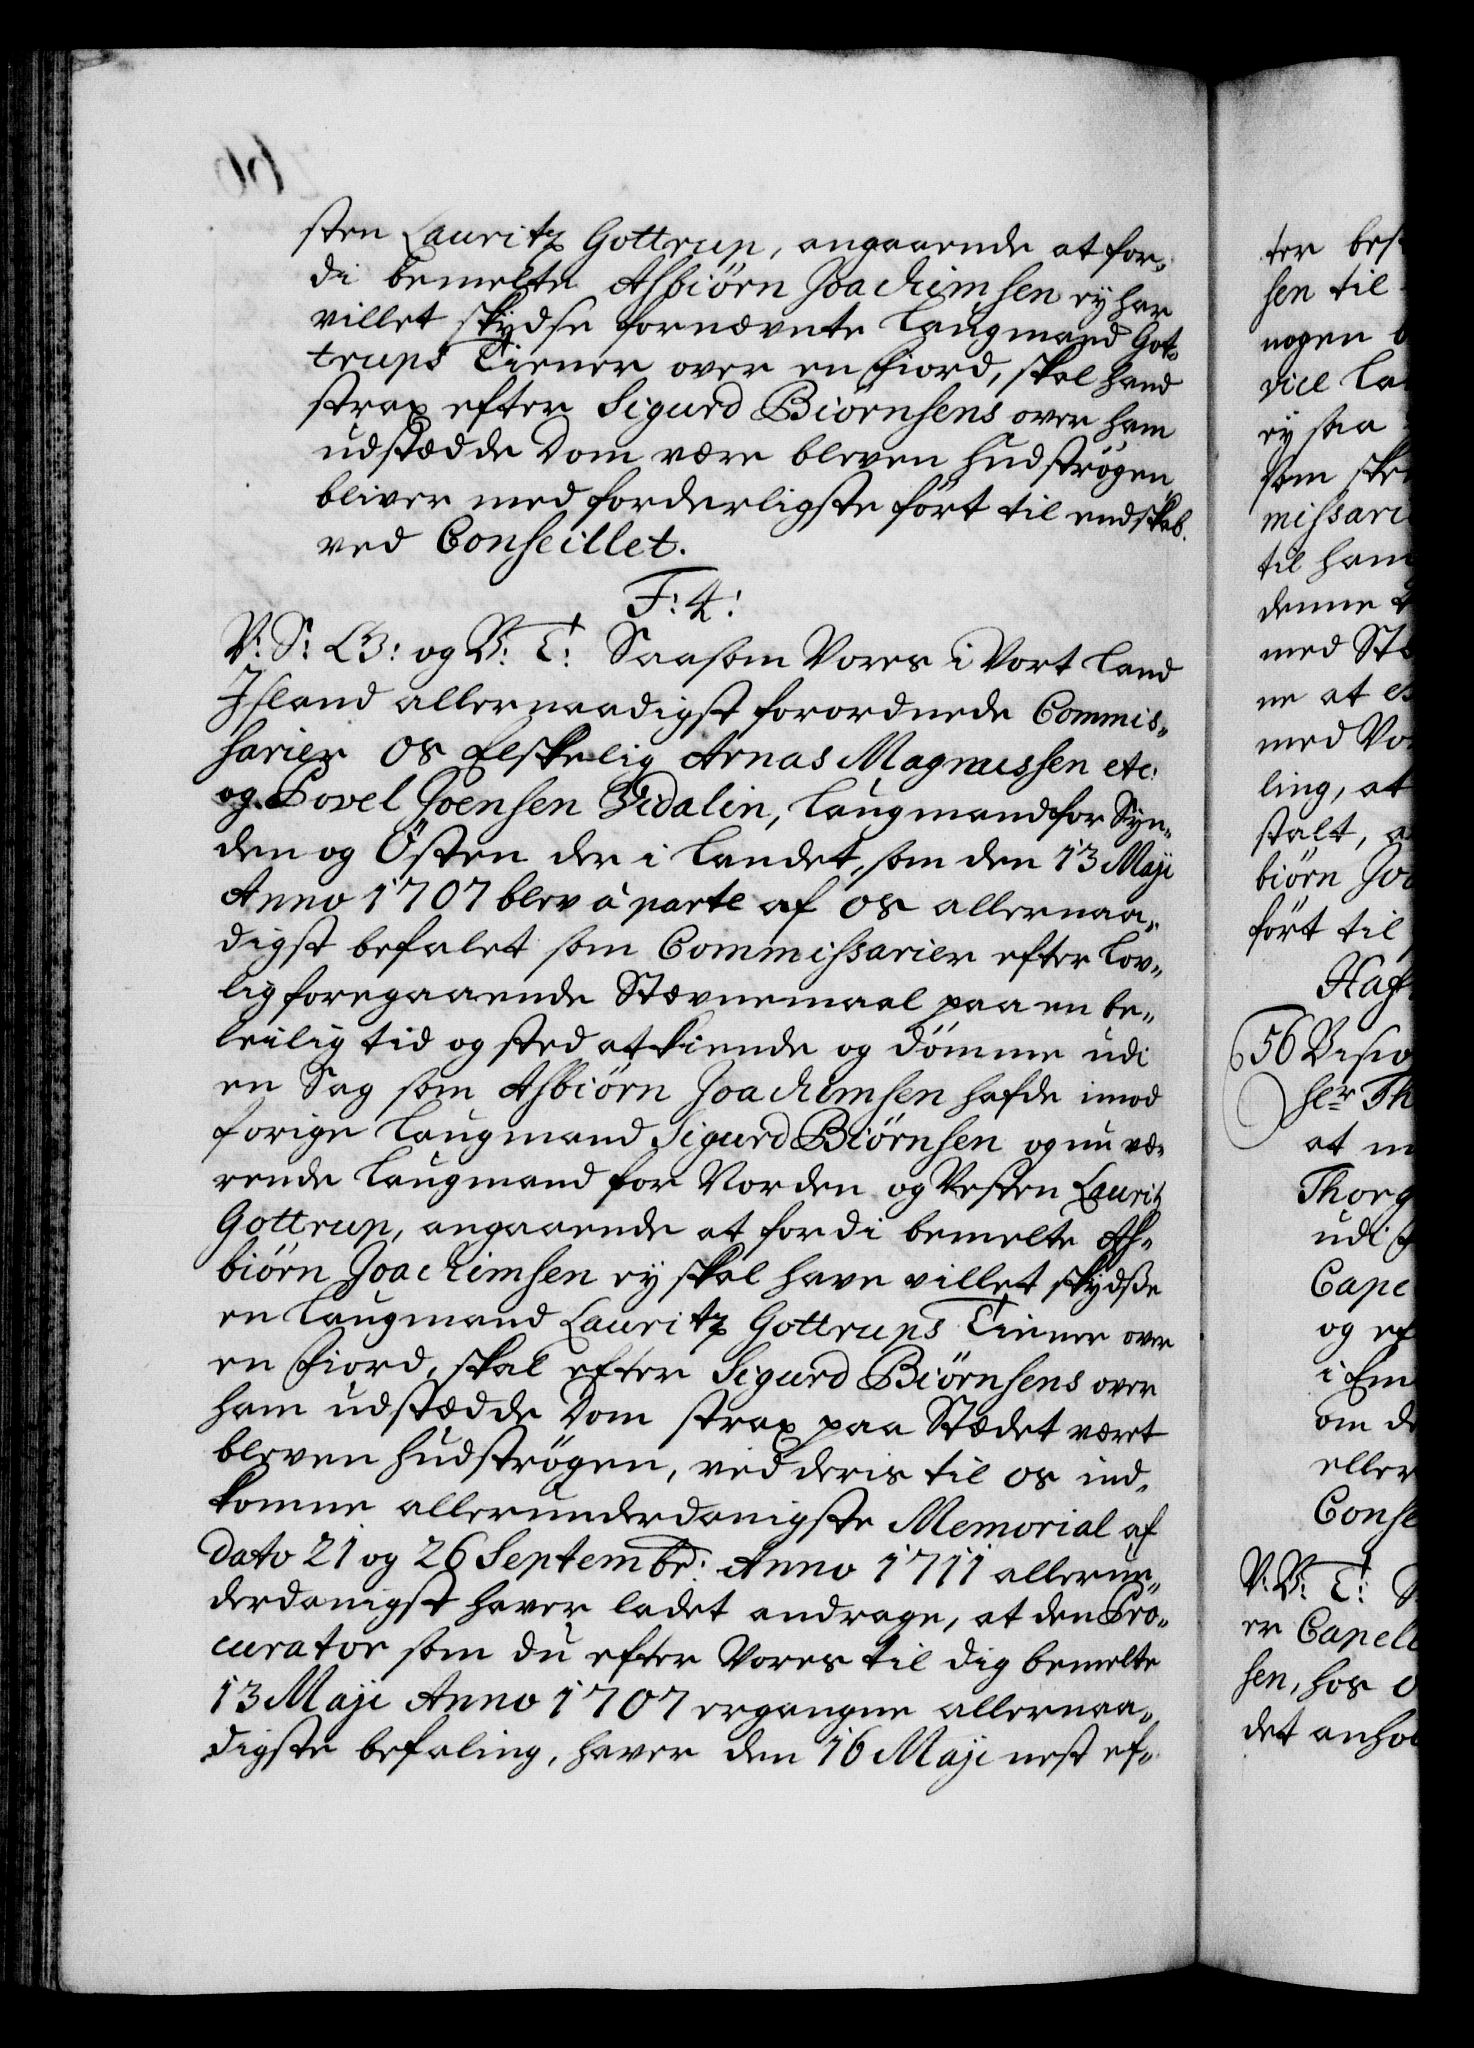 sten Lauritz Gottrup, angaaende at for„
di bemelte Asbiörn Joachimsen ey har
villet skydse fornævnte Laugmand Got„
trups Tiener over en Fiord, skal hand
strax efter Sigurd Biörnsens over ham
udstædde Dom være bleven hudströgen,
bliver med forderligste fört til endskab.
ved Conseillet.
F: 4:
V: S: G: og V: T: Saasom Vores i Vort Land
Jsland allernaadigst forordnede Commis„
sarier Os Elskelig Arnas Magnussen etc:
og Povel Joensen Vidalin, Laugmand for Syn„
den og Östen der i Landet, som den 13 Maji
Anno 1707 blev à parte af Os allernaa„
digst befalet som Commissarier efter Lov„
lig foregaaende Stævnemaal paa en be„
leilig tid og sted at kiende og dömme udi
en Sag som Asbiörn Joachimsen hafde imod
forige Laugmand Sigurd Biörnsen og nu væ„
rende Laugmand for Norden og Vesten Lauritz
Gottrup, angaaende at fordi bemelte As„
biörn Joachimsen ey skal have villet skydse
en Laugmand Lauritz Gottrups Tiener over
en Fiord, skal efter Sigurd Biörnsens over
ham udstædde Dom strax paa Stædet været
bleven hudströgen, ved deris til Os ind„
komne allerunderdanigste Memorial af
Dato 21 og 26 Septembr: Anno 1711 allerun„
derdanigst haver ladet andrage, at den Pro„
curator som du efter Vores til dig bemelte
13 Maji Anno 1707 ergangne allernaa„
digste befaling, haver den 16 Maji nest ef„
ter
sen til
nogen
vice
ey saa
Dom
til ham
denne
med
ne at
med
ling, at
stalt,
biörn
fört til
56
at
udi
og
i
om
eller
V: V: T:
er
sen, hos
det